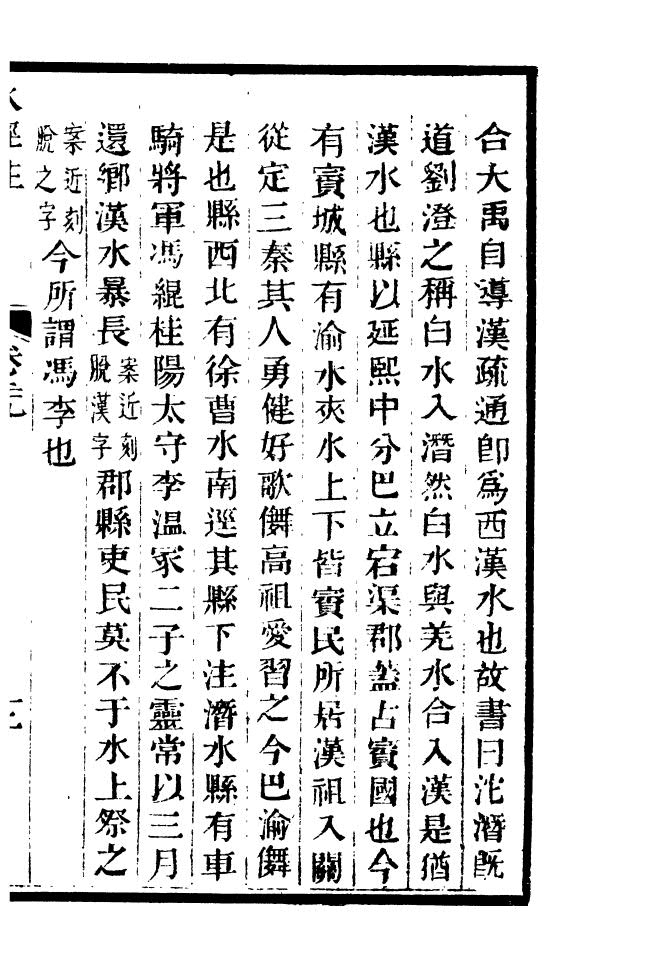 合大禹自導漢疏通卽爲西漢水也故書曰沱潛旣
道劉澄之稱白水入潛然白水與羌水合入漢是猶
漢水也縣以延熙中分巴立宕渠郡蓋古賨國也今
有賨城縣有渝水夾水上下皆賨民所居漢祖入關
從定三秦其人勇健好歌儛高祖愛習之今巴渝儛
是也縣西北有徐曹水南逕其縣下注潛水縣有車
騎將軍馮緄桂陽太守李溫冢二子之靈常以三月
還鄉漢水暴長案近刻脫漢字郡縣吏民莫不于水上祭之
案近刻脫之字今所謂馮李也
水經注 卷二十九